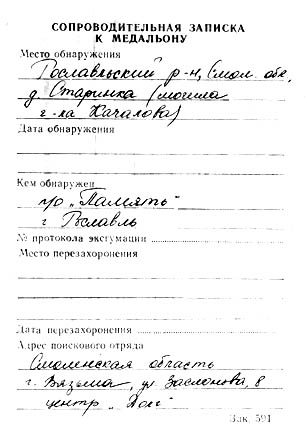 СОПРОВОДИТЕЛЬНАЯ ЗАПИСКА
К МЕДАЛЬОНУ
Место обнаружения
Рославльский р-н, Смол. обл,
д. Старинка (могила
г-ла Качалова)
Дата обнаружения
Кем обнаружен
п/о „Память"
г Рославль
№ протокола эксгумации
Место перезахоронения
Дата перезахоронения
Адрес поискового отряда
Смоленская область
г. Вязьма, ул Заслонова, 8
центр „Долг"
Зак. 591